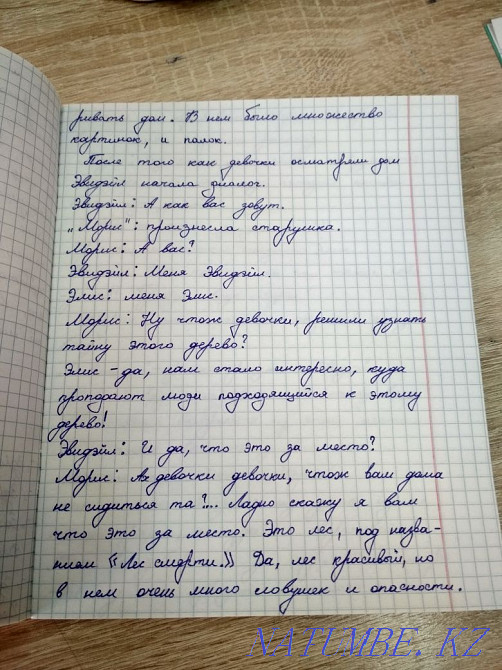 ривать дом. В нем было множество
картинок, и полок.
После того как девочки осмотрели дом
Эвидэйл начала диолог.
Эвидэйл: А как вас зовут.
„Морис": произнесла старушка.
Морис: А вас?
Эвидэйл: Меня Эвидэйл.
Элис: меня Элис.
Морис: Ну чтож девочки, решили узнать
тайну этого дерево?
Элис - да, нам стало интересно, куда
пропадают люди подходящийся к этому
дерево!
Эвидэйл: И да, что это за место?
Морис: Ах девочки девочки, чтож вам дома
не сидиться та?... Ладно скажу я вам
что это за место. Это лес, под назва-
нием «Лес смерти.» Да, лес красивый, но
в нем очень много ловушек и опасности.
NATUMBE.KZ